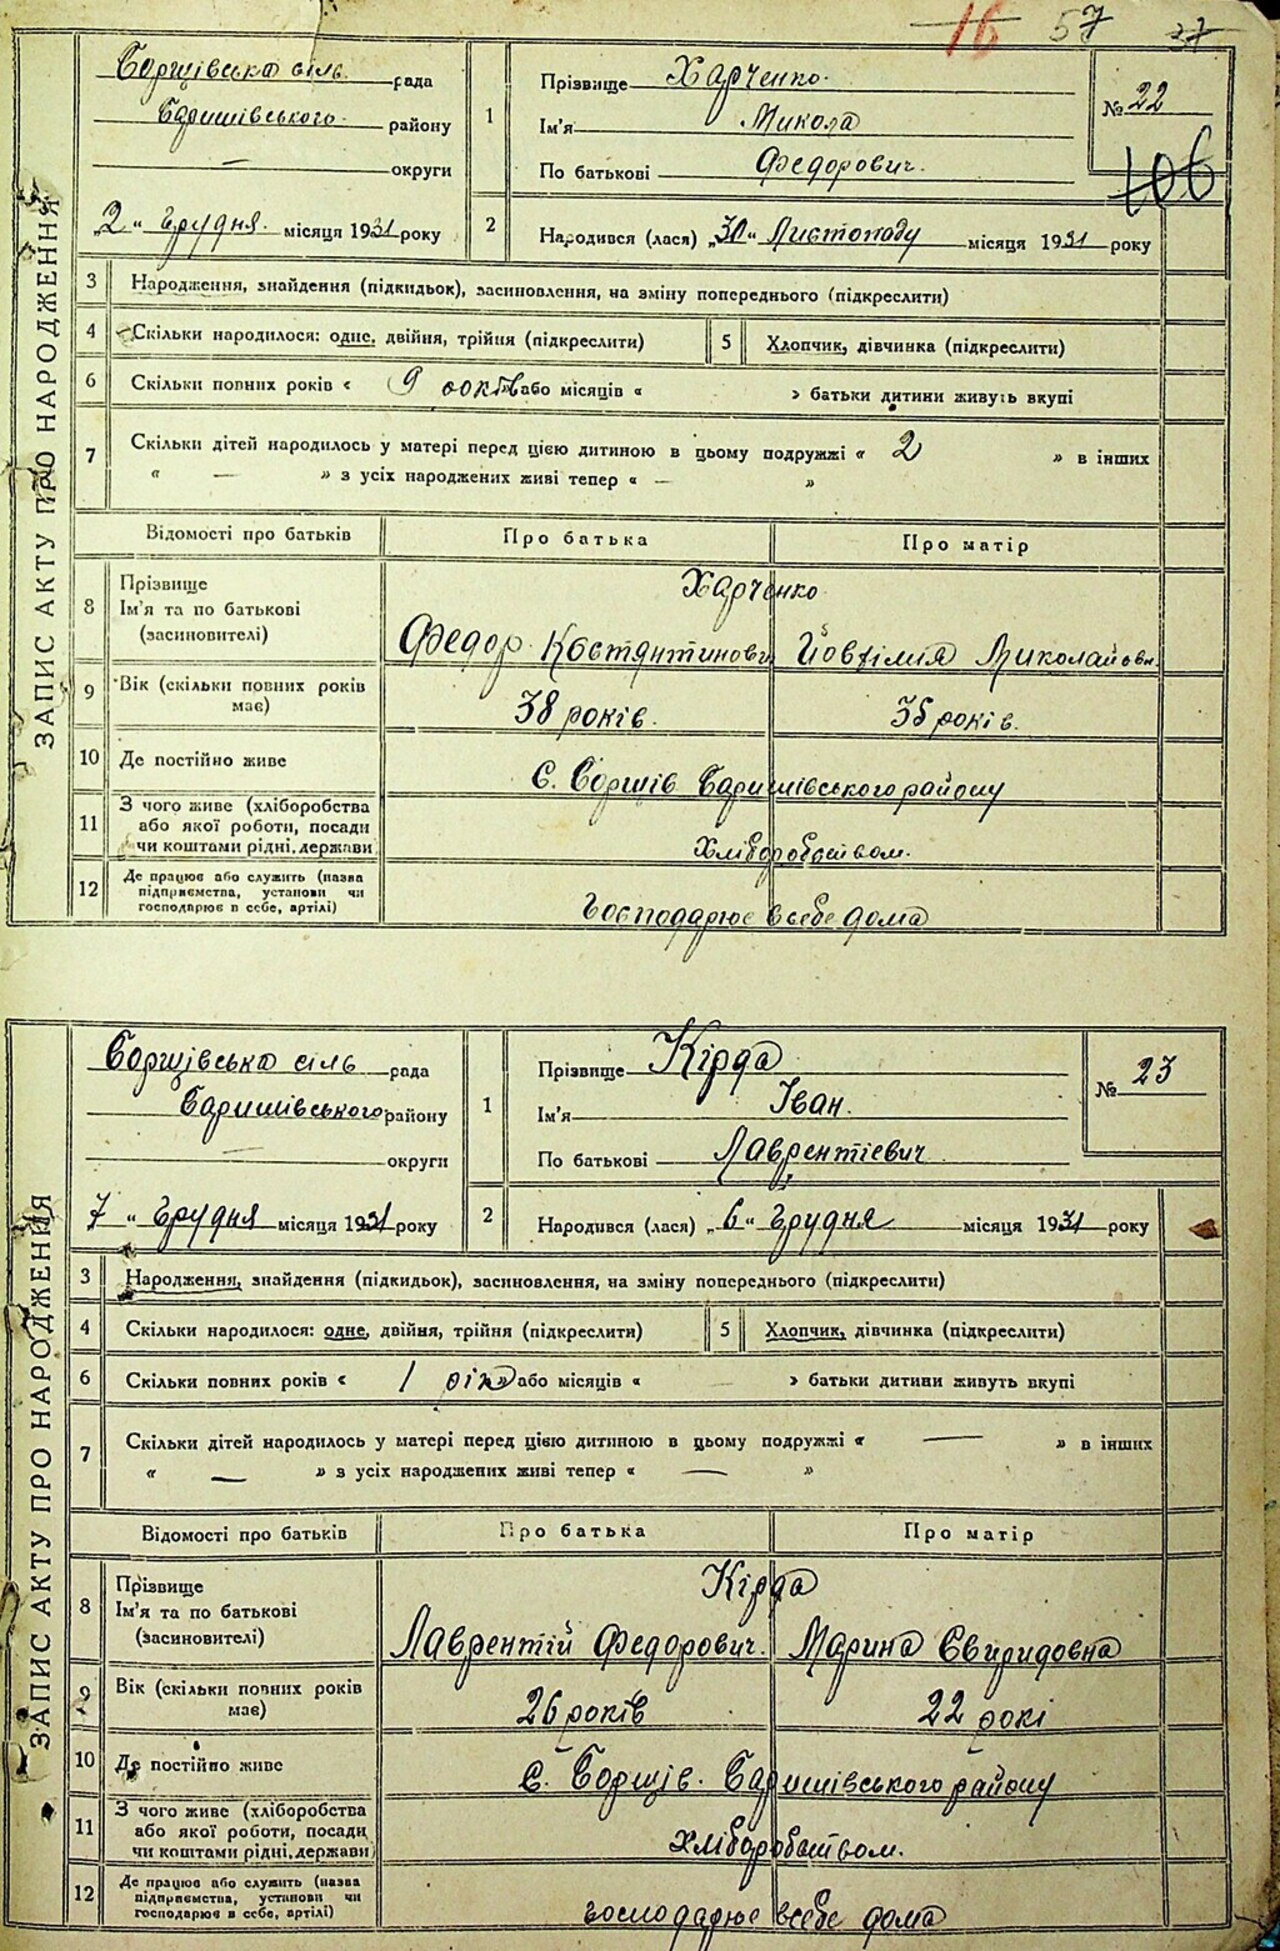 16 57 37
ЗАПИС АКТУ ПРО НАРОДЖЕННЯ
Борщівська сіль рада
Баришівського району
— округи
„2“ Грудня місяця 1931 року
1
Прізвище Харченко
Ім'я Микола
По батькові Федорович.
№ 22
106
2
Народився (лася) „30“ Листопаду місяця 1931 року
3 Народження, знайдення (підкидьок), засиновлення, на зміну попереднього (підкреслити)
4 Скільки народилося: одне, двійня, трійня (підкреслити) 5 Хлопчик, дівчинка (підкреслити)
6 Скільки повних років « 9 років» або місяців « » батьки дитини живуть вкупі
7 Скільки дітей народилось у матері перед цією дитиною в цьому подружжі « 2 » в інших
« — » з усіх народжених живі тепер « — »
Відомості про батьків Про батька Про матір
8 Прізвище
Ім'я та по батькові
(засиновителі)
Харченко
Федор Костянтинович Йовхімія Миколайовн.
9 Вік (скільки повних років має) 38 років. 35 років.
10 Де постійно живе с. Борщів Баришівського району
11 З чого живе (хліборобства
або якої роботи, посади
чи коштами рідні, держави
Хліборобством.
12 Де працює або служить (назва
підприємства, установи чи
господарює в себе, артілі)
Господарює в себе дома
ЗАПИС АКТУ ПРО НАРОДЖЕННЯ
Борщівська сіль рада
Баришівського району
— округи
7 “ Грудня місяця 1931 року
1
Прізвище Кірда
Ім'я Іван.
По батькові Лаврентіевич
№ 23
2
Народився (лася) „6“ Грудня місяця 1931 року
3 Народження, знайдення (підкидьок), засиновлення, на зміну попереднього (підкреслити)
4 Скільки народилося: одне, двійня, трійня (підкреслити) 5 Хлопчик, дівчинка (підкреслити)
6 Скільки повних років « 1 рік» або місяців « — » батьки дитини живуть вкупі
7 Скільки дітей народилось у матері перед цією дитиною в цьому подружжі « — » в інших
« — » з усіх народжених живі тепер « — »
Відомості про батьків Про батька Про матір
8 Прізвище
Ім'я та по батькові
(засиновителі)
Кірда
Лаврентій Федорович. Марина Свиридовна
9 Вік (скільки повних років має) 26 років 22 рокі
10 Де постійно живе с. Борщів. Баришівського району
11 З чого живе (хліборобства
або якої роботи, посади
чи коштами рідні, держави)
хліборобством.
12 Де працює або служить (назва
підприємства, установи чи
господарює в себе, артілі)
господарює всебе дома